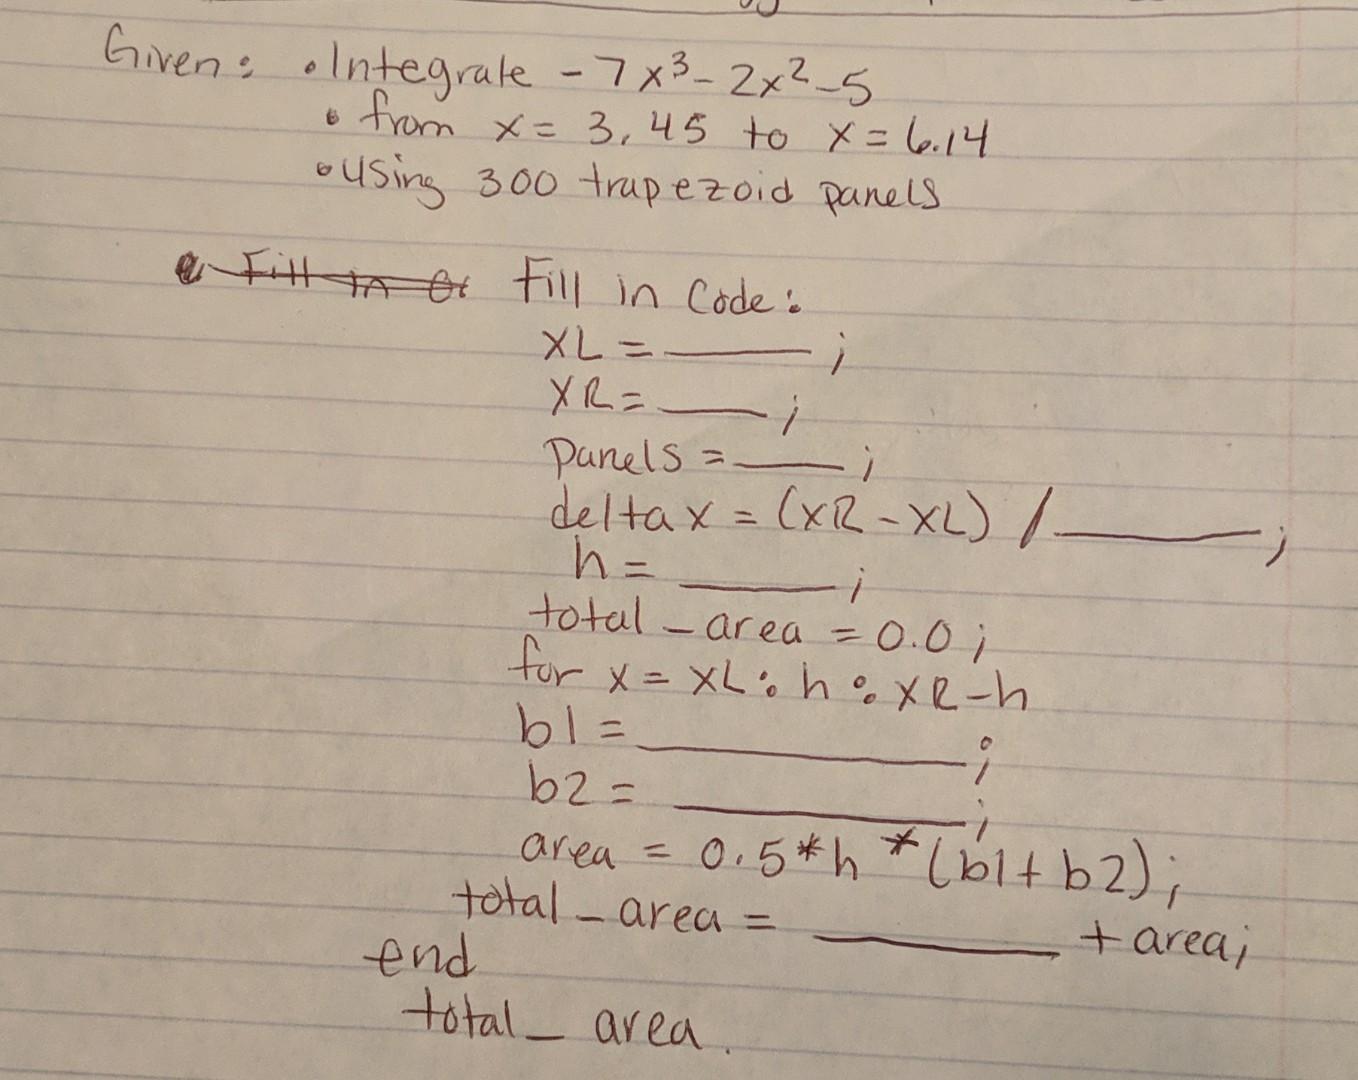 Given: • Integrate -7x³-2x²-5
• from x= 3.45 to x=6.14
• using 300 trapezoid panels
• Fill in Fill in Code:
XL = ______ ;
XR = ____ ;
Panels = ____ ;
delta x = (XR - XL) / ________ ;
h = ______ ;
total_area = 0.0 ;
for x = XL : h : XR-h
b1 = ____________ ;
b2 = ____________ ;
area = 0.5*h *(b1+b2);
total_area = _________ + area;
end
total_area.